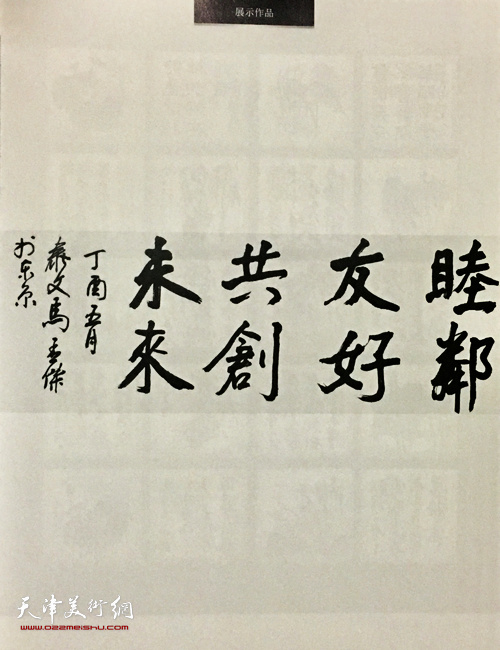 展示作品
睦鄰
友好
共創
未來
丁酉五月
於东京
天津美術網
www.022meishu.com